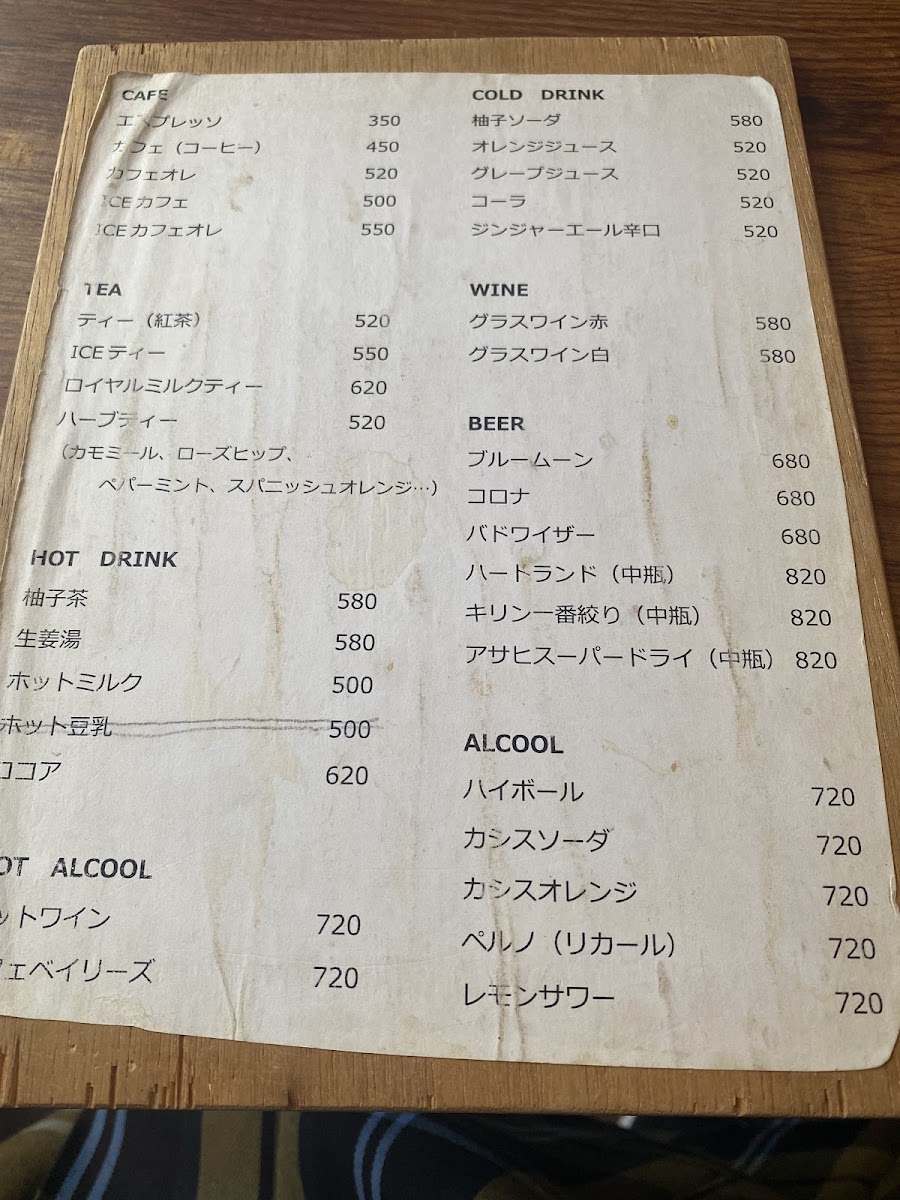 CAFE
エスプレッソ 350
カフェ（コーヒー） 450
カフェオレ 520
ICEカフェ 500
ICEカフェオレ 550
TEA
ティー（紅茶） 520
ICEティー 550
ロイヤルミルクティー 620
ハーブティー 520
（カモミール、ローズヒップ、
ペパーミント、スパニッシュオレンジ…）
HOT DRINK
柚子茶 580
生姜湯 580
ホットミルク 500
ホット豆乳 500
ココア 620
OT ALCOOL
ットワイン 720
フェベイリーズ 720
COLD DRINK
柚子ソーダ 580
オレンジジュース 520
グレープジュース 520
コーラ 520
ジンジャーエール辛口 520
WINE
グラスワイン赤 580
グラスワイン白 580
BEER
ブルームーン 680
コロナ 680
バドワイザー 680
ハートランド（中瓶） 820
キリン一番絞り（中瓶） 820
アサヒスーパードライ（中瓶） 820
ALCOOL
ハイボール 720
カシスソーダ 720
カシスオレンジ 720
ペルノ（リカール） 720
レモンサワー 720